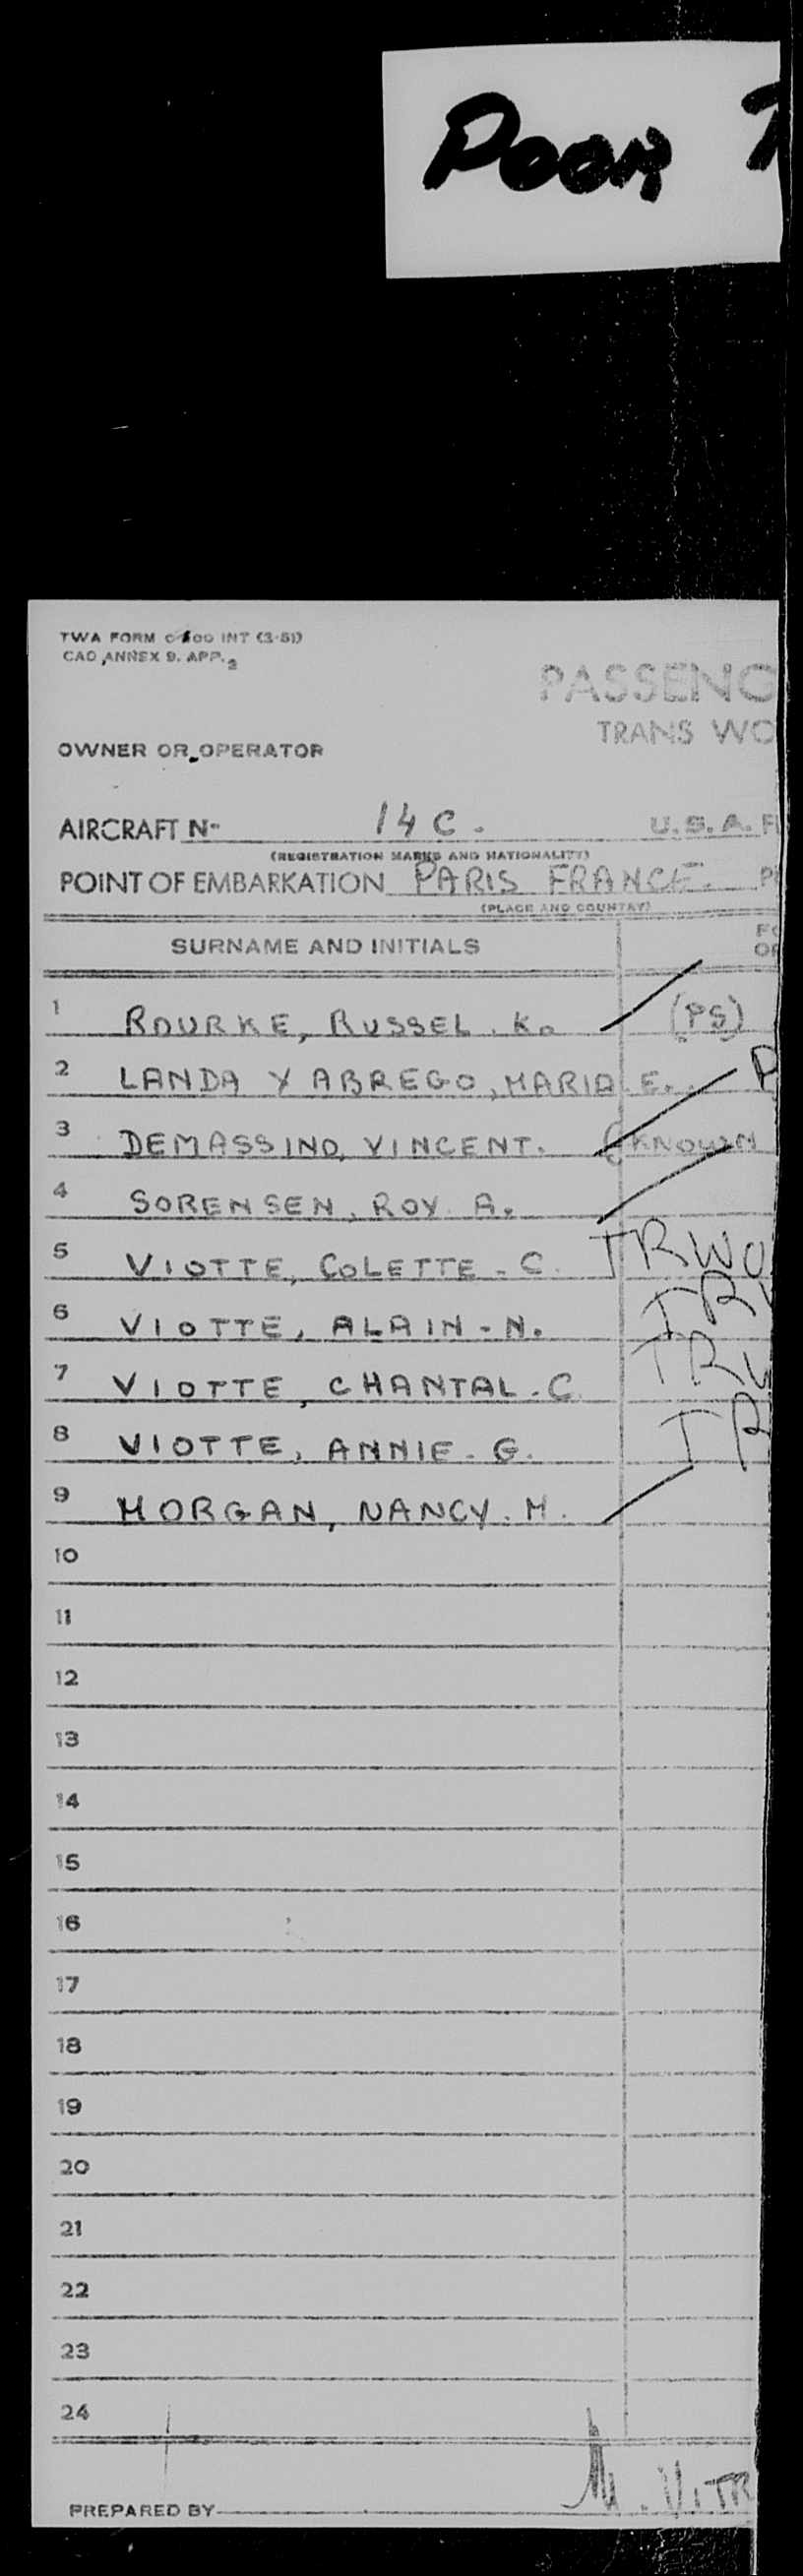 POOR
TWA FORM INT (3-51)
CAO ANNEX 9. APP. 2
PASSENG
TRANS WO
OWNER OR OPERATOR
AIRCRAFT No 14 C. U.S.A.
(REGISTRATION MARKS AND NATIONALITY)
POINT OF EMBARKATION PARIS FRANCE.
(PLACE AND COUNTRY)
SURNAME AND INITIALS
1 ROURKE, RUSSEL. K. (PS)
2 LANDA Y ABREGO, MARIA E. P
3 DEMASSINO, VINCENT. (KNOWN
4 SORENSEN, ROY. A.
5 VIOTTE, COLETTE - C. TRWO
6 VIOTTE, ALAIN - N. TR
7 VIOTTE, CHANTAL - C TR
8 VIOTTE, ANNIE - G. TR
9 MORGAN, NANCY. M.
10
11
12
13
14
15
16
17
18
19
20
21
22
23
24
PREPARED BY